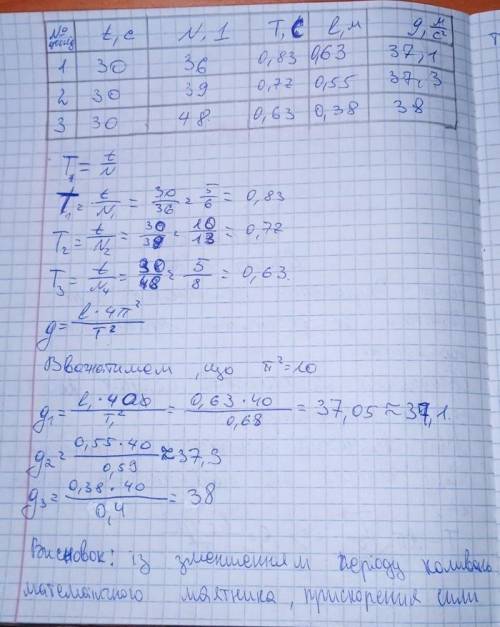 № досліду t, с N, 1 T, с l, м g, м/с²
1 30 36 0,83 0,63 37,1
2 30 39 0,72 0,55 37,3
3 30 48 0,63 0,38 38
T₁ = t/N
T₁ = t/N₁ = 30/36 = 5/6 = 0,83
T₂ = t/N₂ = 30/39 = 10/13 = 0,72
T₃ = t/N₄ = 30/48 = 5/8 = 0,63.
g = l·4π²/T²
Вважатимем, що π²=10
g₁ = l₁·40/T₁² = 0,63·40/0,68 = 37,05 ≈ 37,1.
g₂ = 0,55·40/0,59 ≈ 37,3
g₃ = 0,38·40/0,4 = 38
Висновок: із зменшенням періоду коливань
математичного маятника, прискорення сили